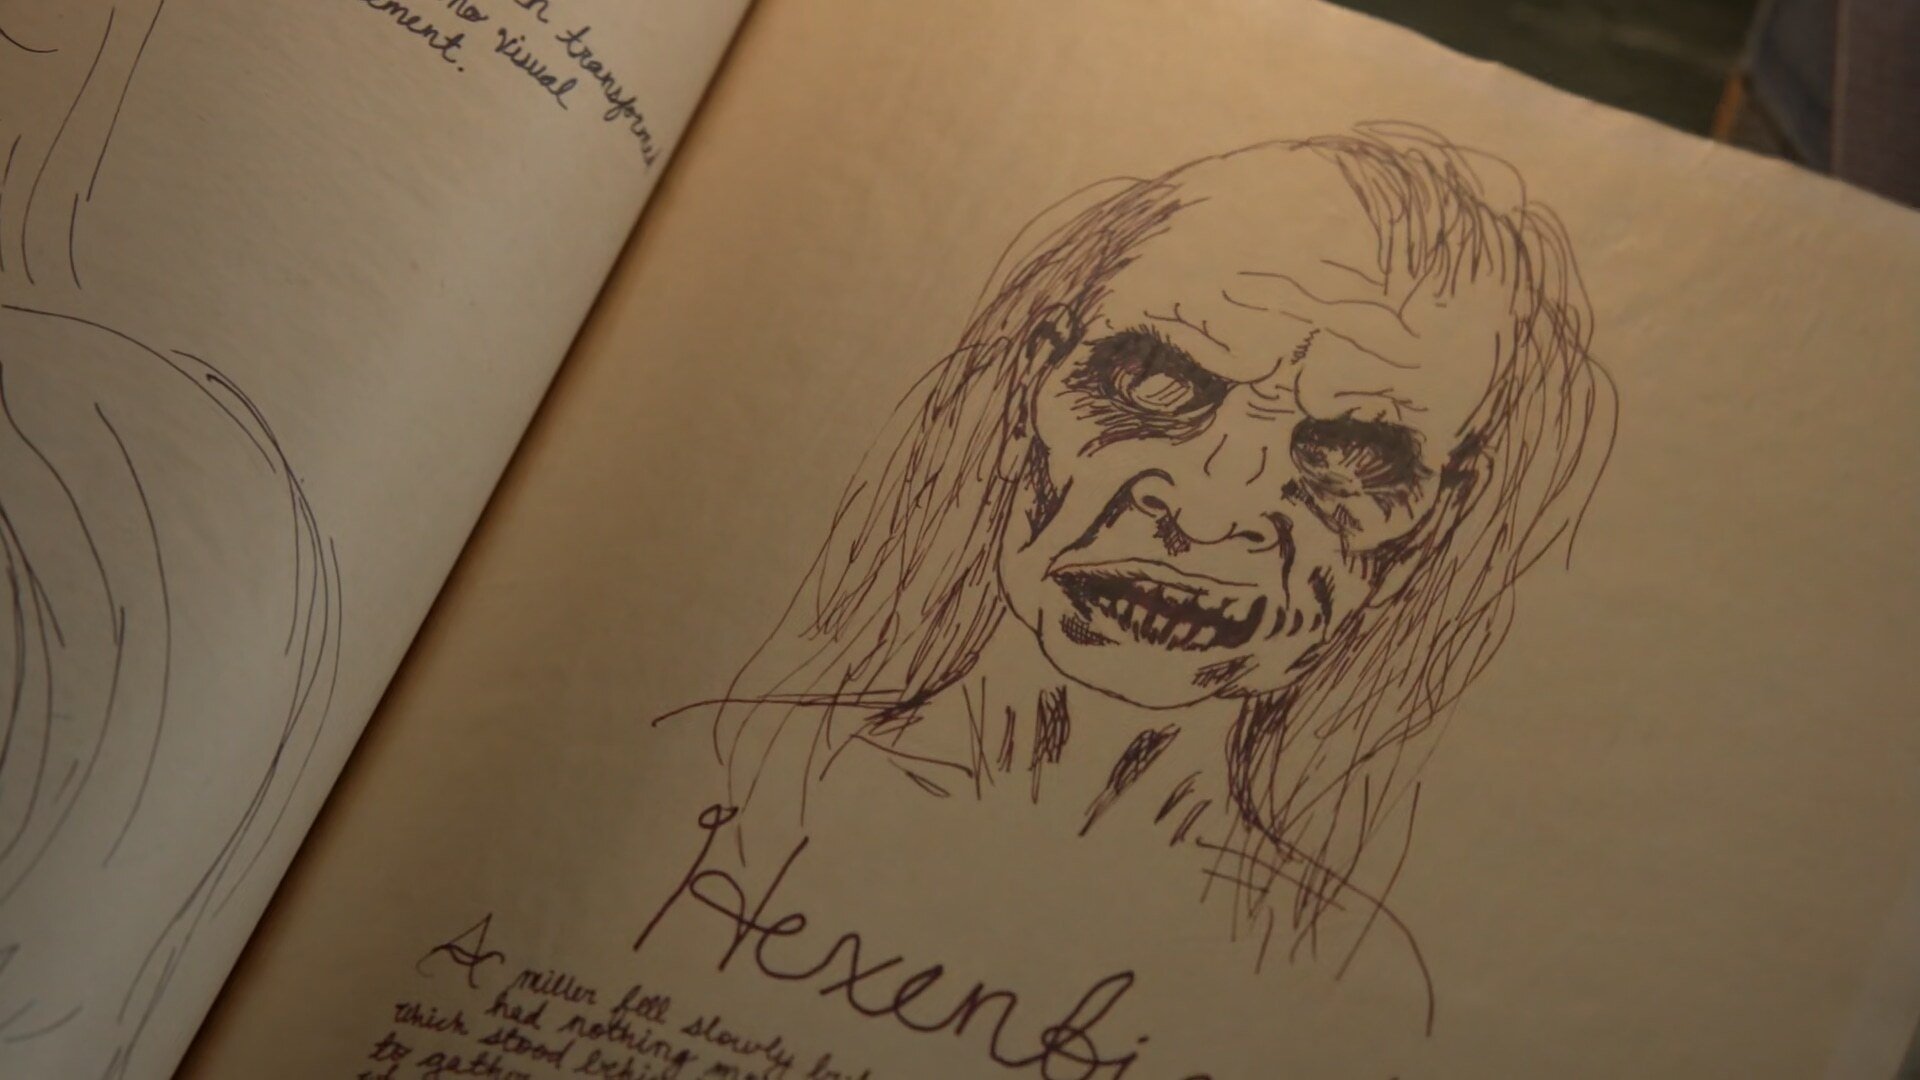 transformed
no visual
ement.
Hexenbi
A miller fell slowly but
had nothing
which stood behi
to gather